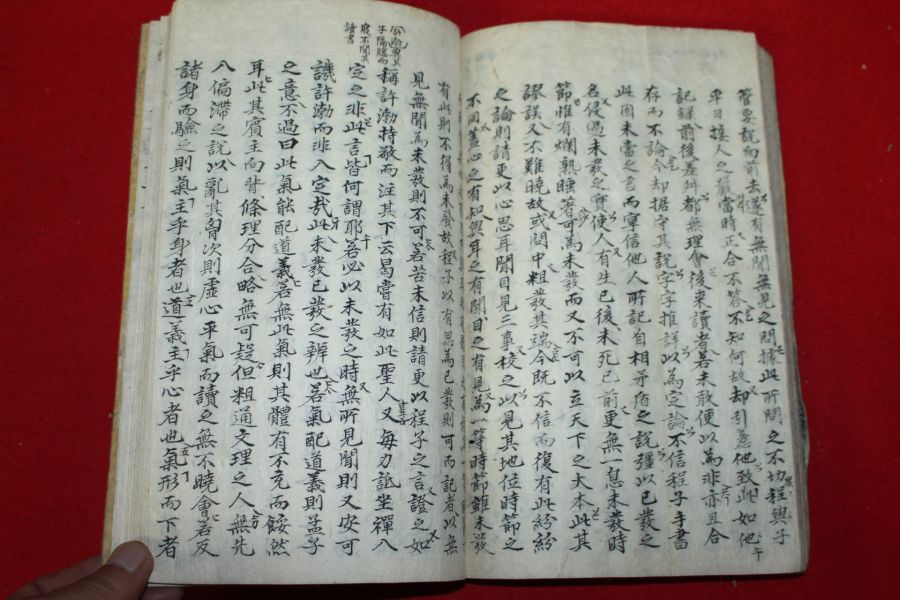 管要說向前去遂有無聞無見之問據此所聞之不切程與子
平日接人之嚴當時正合不答不知何故却引惹他致此如他
記錄前後差舛都無理會後來讀者若未敢便以為非亦且合
存而不論今却据守其說字字推詳以為定論不信程子手書
此固未當之言而寧信他人所記自相矛盾之說彊以已發之
名侵過未發之實使人有生已後未死已前更無一息未發時
節惟有爛熟睡著可為未發而又不可以立天下之大本此其
謬誤又不難曉故或問中粗發其端今既不信而復有此紛紛
之論則請更以心思耳聞目見三事校之以見其地位時節之
不同盖心之有知與耳之有聞目之有見為一等時節雖未發
有此則不得為未發故程子以有思為已發則可而記者以無
見無聞為未發則不可若苦未信則請更以程子之言證之如
許渤與其
子隔牕而
寢不聞其
讀書
稱許渤持敬而注其下云曷嘗有如此聖人又每力詆坐禪入
定之非此言皆何謂耶若必以未發之時無所見聞則又安可
譏許渤而非入定哉此未發已發之辨也若氣配道義則孟子
之意不過曰此氣能配道義若無此氣則其體有不充而餒然
耳此其賓主向背條理分合略無可疑但粗通文理之人無先
入偏滯之說以亂其胷次則虛心平氣而讀之無不曉會若反
諸身而驗之則氣主乎身者也道義主乎心者也氣形而下者